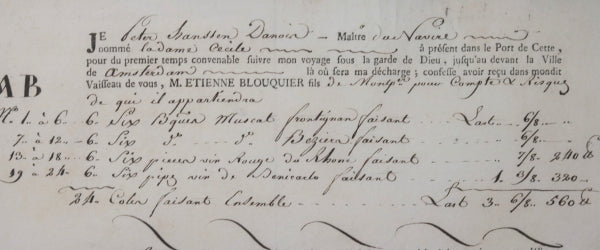 JE Peter Hanssen Danois – Maître du Navire
nommé la dame Cecile à présent dans le Port de Cette,
pour du premier temps convenable suivre mon voyage sous la garde de Dieu, jusqu'au devant la Ville
de amsterdam là où sera ma décharge; confesse avoir reçu dans mondit
Vaisseau de vous, M. ETIENNE BLOUQUIER fils de Montpr. pour Compte & Risque
AB de qui il appartiendra
No. 1 à 6 – 6 – Six Bques Muscat frontignan faisant Last 6/8
7 à 12 – 6 – Six do. do. Beziers faisant 6/8
13 à 18 – 6 – Six pieces vin Rouge du Rhone faisant 7/8 240 tt
19 à 24 – 6 – Six pipes vin de Benicarlo faisant 1. 3/8 320
24. Colis faisant Ensemble Last 3 6/8 560 tt